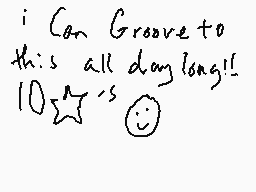 i Can Groove to
this all day long!!
10 ☆-s ☺